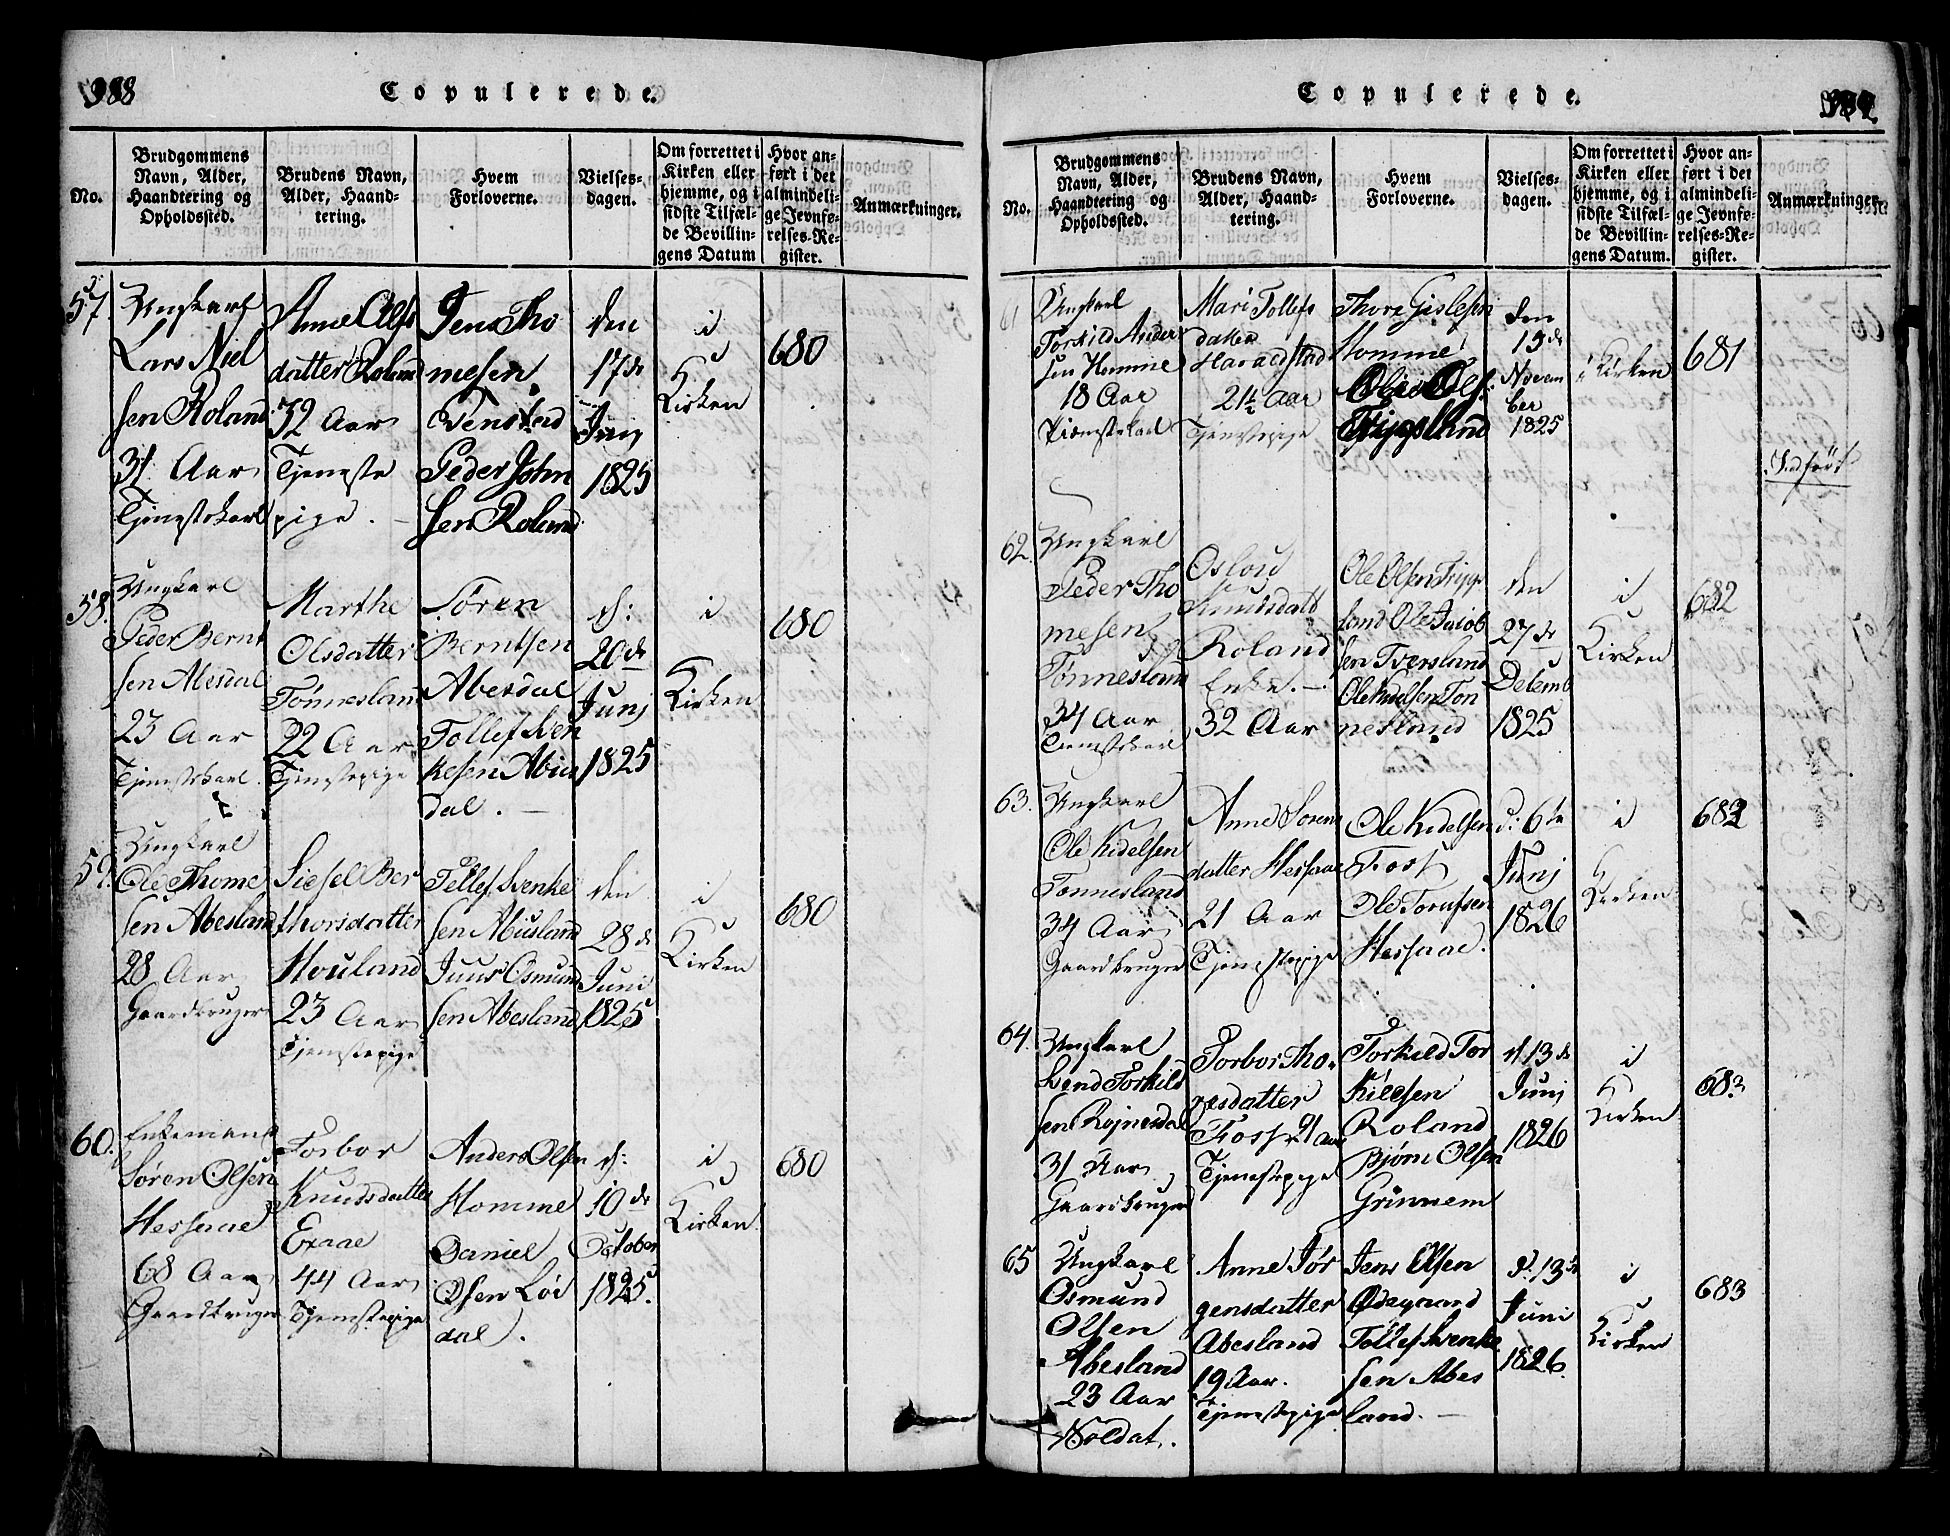 388
Copulerede.
No.
Brudgommens
Navn, Alder,
Haandtering og
Opholdssted.
Brudens Navn,
Alder, Haand-
tering.
Hvem
Forloverne.
Vielses-
dagen.
Om forrettet i
Kirken eller
hjemme, og i
sidste Tilfæl-
de Bevillin-
gens Datum
Hvor an-
ført i det
almindeli-
ge Jevnfø-
relses-Re-
gister.
Anmærkninger.
57.
Ungkarl
Lars Niel
sen Roland
31 Aar
Tjenestekarl
Anne Olss
datter Roland
32 Aar
Tjeneste
pige.
Jens Tho
mesen
Tenstad
Peder John
sen Roland
den
17de
Junj
1825
i
Kirken
680
58.
Ungkarl
Peder Bernt
sen Abesdal
23 Aar
Tjenestekarl.
Marthe
Olsdatter
Tønnesland
22 Aar
Tjenestepige
Søren
Berntsen
Abesdal
Tollef Sven
kesen Abies
dal. —
d:
20de
Junj
1825
i
Kirken
680
59.
Ungkarl
Ole Thome
sen Abesland
28 Aar
Gaardbruger
Siesel Ber
thorsdatter
Houland
23 Aar
Tjenestepige
Tellef Svenke
sen Abusland
Juur Osmund
sen Abesland
den
28de
Juni
1825
i
Kirken
680
60.
Enkemand
Søren Olsen
Hessaae
68 Aar
Gaardbruger
Torbor
Knudsdatter
Exaae
44 Aar
Tjenestepige
Anders Olsen
Homme
Daniel
Olsen Løi
dal.
d:
10de
October
1825.
i
Kirken
680
Copulerede.
389.
No.
Brudgommens
Navn, Alder,
Haandtering og
Opholdssted.
Brudens Navn,
Alder, Haand-
tering.
Hvem
Forloverne.
Vielses-
dagen.
Om forrettet i
Kirken eller
hjemme, og i
sidste Tilfæl-
de Bevillin-
gens Datum.
Hvor an-
ført i det
almindeli-
ge Jevnfø-
relses-Re-
gister.
Anmærkninger
61
Ungkarl
Torkild Ander
sen Homme
18 Aar
Tjenestekarl
Mari Tollefs
datter
Haraldstad
21½ Aar
Tjenestepige
Thore Gislesen
Homme
Ole Ols:
Trygsland
den
19de
Novem
ber
1825
i Kirken
681
Indført
62.
Ungkarl
Peder Tho
mesen
Tønnesland
34 Aar
Tjenestekarl
Oslou
Knudsdatt
Roland
Enke. —
32 Aar
Ole Olsen Trygs
land Ole Jacob
sen Tversland
Ole Kidelsen Ton
nesland
den
27de
Decemb
1825
i
Kirken
682
63.
Ungkarl
Ole Kidelsen
Tonnesland
34 Aar
Gaardbruger
Anne Sorens
datter Hessaae
21 Aar
Tjenestepige
Ole Kidelsen
Foss
Ole Torufsen
Hessaae.
d: 6te
Junj
1826
i
Kirken
682
64.
Ungkarl
Svend Torkild
sen Rojnesdal
31 Aar
Gaardbruger
Torbor Tho-
resdatter
Foss 21 Aar
Tjenestepige
Torkild Tor
kildsen
Roland
Bjørn Olsen
Grinnem
d 13de
Junj
1826
i
Kirken
683
65
Ungkarl
Osmund
Olsen
Abesland
23 Aar
Soldat.
Anne Jør
gensdatter
Abesland
19 Aar.
Tjenestepige
Jens Olsen
Ødegaard
Tollef Svenke
sen Abes
land. —
d. 13de
Juni
1826.
i
Kirken
683